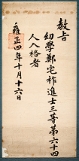 教旨
幼學郭宅祚進士三等第六十四
人入格者
雍正四年十月十六日